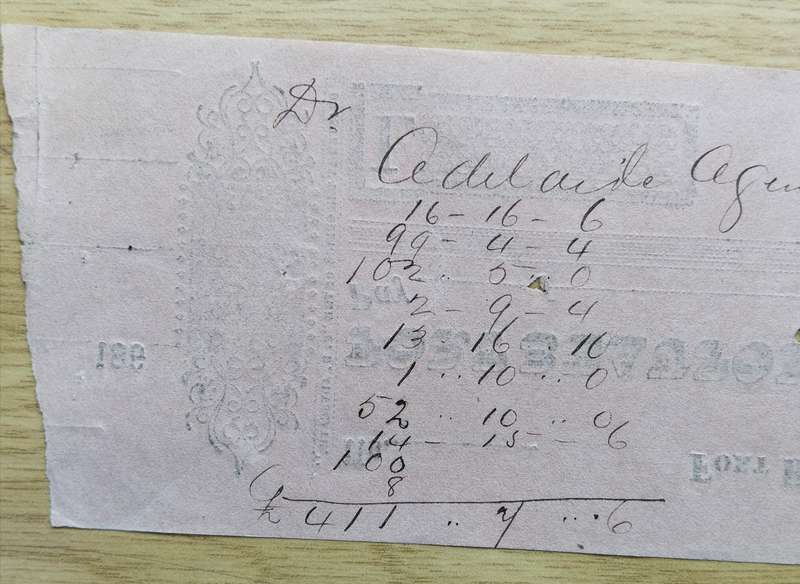 Dr
Adelaide Agen
16 - 16 - 6
99 - 4 - 4
102 .. 5 .. 0
2 - 9 - 4
13 .. 16 .. 10
1 .. 10 .. 0
52 .. 10 .. 0
14 - 15 - 6
100
8
£ 411 .. 7 ... 6